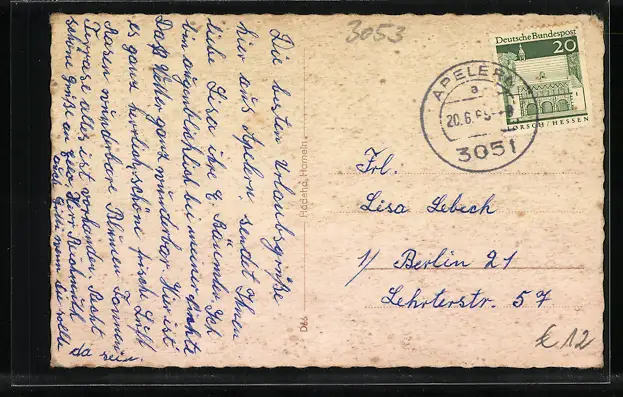 3053
Die besten Urlaubsgrüße
hier aus Apelern sendet Ihnen
liebe Lisa ihre E. Bäumler. Ich
bin augenblicklich bei meiner
Das Wetter ganz wunderbar. Hier ist
es ganz herrlich schöne frische Luft
Rasen wunderbare Blumen Tannen
Terrasse alles ist vorhanden. Recht
schöne Grüße an Herr
oder wenn sie
da sein.
D66
Hädeha, Hameln
Deutsche Bundespost
20
LORSCH/HESSEN
APELERN
a
20.6.69
3051
Frl.
Lisa Lebech
1/ Berlin 21
Lehrterstr. 57
€ 12